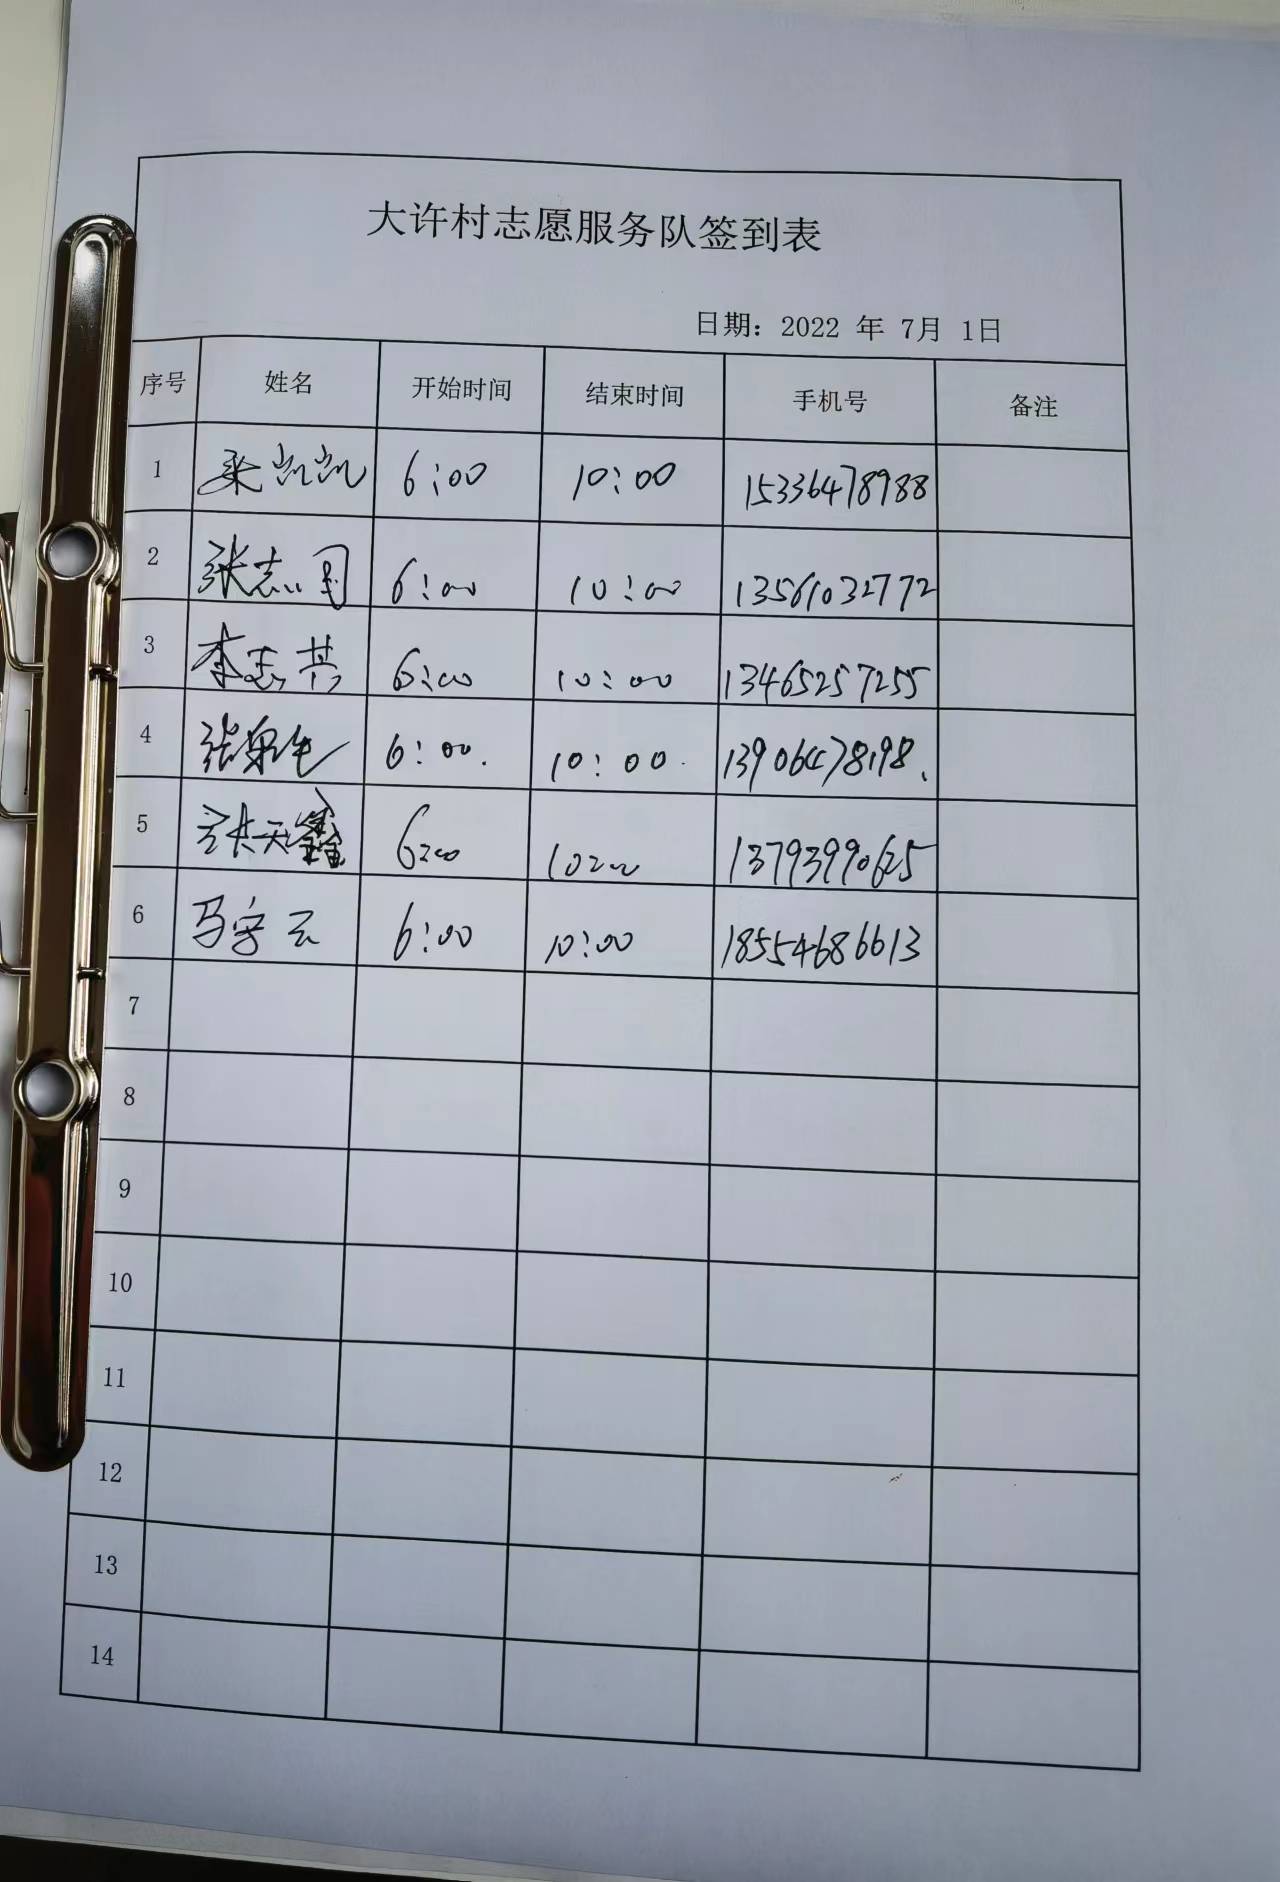 大许村志愿服务队签到表
日期：2022 年 7月 1日
序号 姓名 开始时间 结束时间 手机号 备注
1 凯凯 6:00 10:00 15336478988
2 张志国 6:00 10:00 13561032772
3 李志其 6:00 10:00 13465257255
4 张 6:00. 10:00. 13906478198.
5 张天鑫 6:00 10:00 13793990625
6 马守云 6:00 10:00 18554686613
7
8
9
10
11
12
13
14